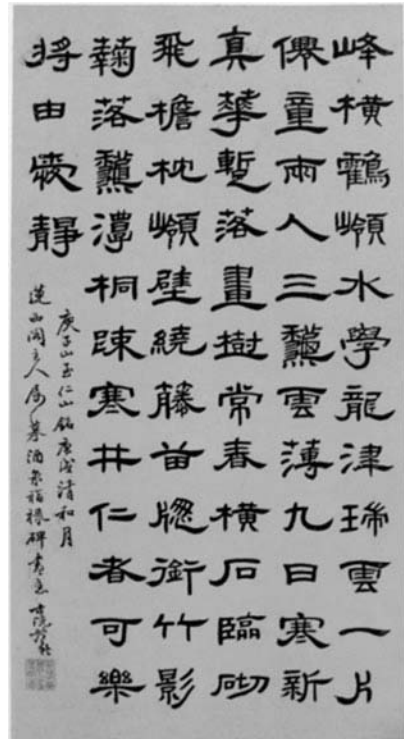 峰橫鶴嶺水學龍津瑞雲一片
僊童兩人三龝雲薄九日寒新
真華蹔落畫樹常春橫石臨砌
飛檐枕嶺壁繞藤苗窻銜竹影
鞠落龝潭桐疎寒井仁者可樂
將由愛靜
庾子山至仁山銘庚戌清和月
山閣主人属摹酒泉福祿碑書意